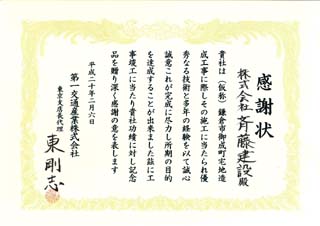 感謝状
株式会社 斉藤建設 殿
貴社は(仮称)鎌倉市御成町宅地造
成工事に際しその施工に当たられ優
秀なる技術と多年の経験を以て誠心
誠意これが完成に尽力し所期の目的
を達成することが出来ました茲に工
事竣工に当たり貴社功績に対し記念
品を贈り深く感謝の意を表します
平成二十年二月六日
第一交通産業株式会社
東京支店長代理
東 剛志